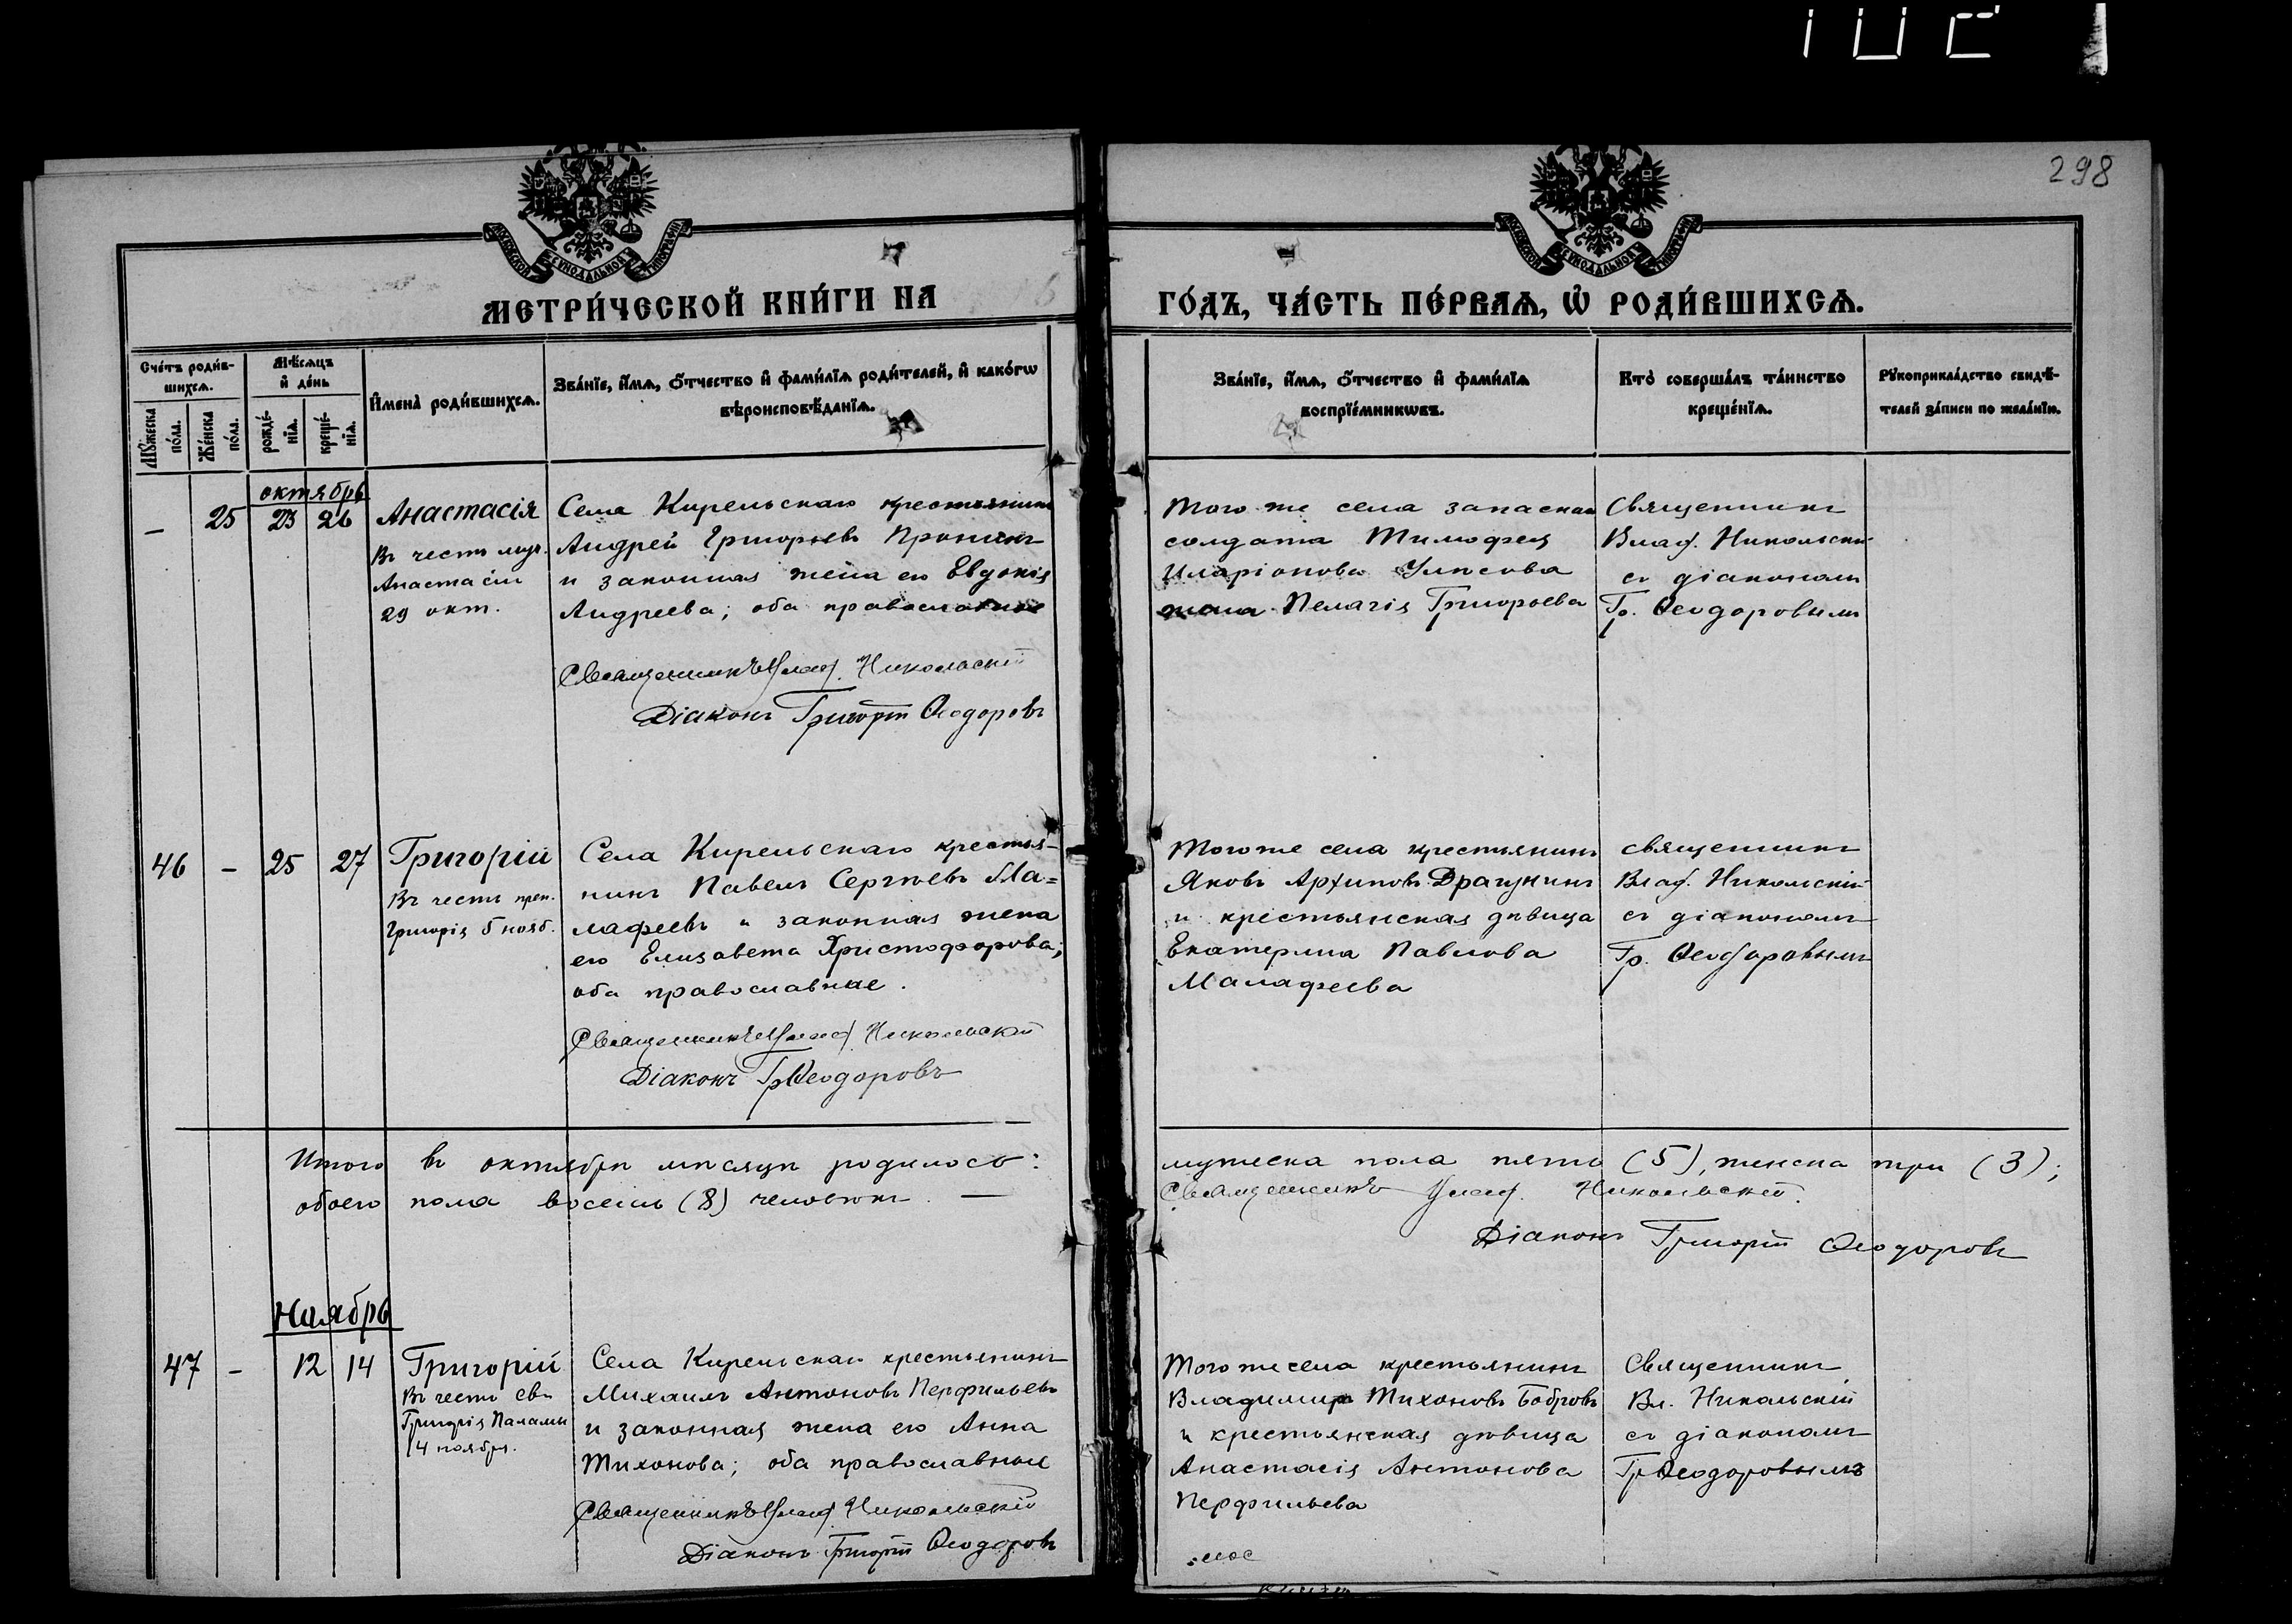 298
МЕТРИ́ЧЕСКОЙ КНИ́ГИ НА
ГО́ДЪ, ЧА́СТЬ ПЕ́РВАѦ, Ѡ҆ РОДИ́ВШИХСѦ.
Сче́тъ роди́в-
шихсѧ.
Мѣ́сѧцъ
и҆ де́нь
Мꙋ́жеска
по́ла.
Же́нска
по́ла.
рожде́-
нїѧ.
креще́-
нїѧ.
И҆мена̀ роди́вшихсѧ.
Зва́нїе, и҆́мѧ, ѻ҆́тчество и҆ фами́лїѧ роди́телей, и҆ како́гѡ
вѣроисповѣ́данїѧ.
Зва́нїе, и҆́мѧ, ѻ҆́тчество и҆ фами́лїѧ
воспрїе́мникѡвъ.
Кто̀ соверша́лъ та́инство
креще́нїѧ.
Рꙋкоприкла́дство свидѣ́-
телей за́писи по жела́нїю.
октябрь
— 25 23 26 Анастасія
Въ честь муч.
Анастасіи
29 окт.
Села Кирельскаго крестьянинъ
Андрей Григорьевъ Пронинъ
и законная жена его Евдокія
Андреева; оба православные
Священникъ Влад. Никольскій
Діаконъ Григорій Ѳеодоровъ
Того же села запаснаго
солдата Тимофея
Иларіонова
жена Пелагія Григорьева
Священникъ
Влад. Никольскій
съ діакономъ
Гр. Ѳеодоровымъ
46 – 25 27 Григорій
Въ честь преп.
Григорія 5 нояб.
Села Кирельскаго крестья-
нинъ Павелъ Сергѣевъ Ма=
лафеевъ и законная жена
его Елизавета Христофорова;
оба православные.
Священникъ Влад. Никольскій
Діаконъ Гр Ѳеодоровъ
Того же села крестьянинъ
Яковъ Архиповъ Драгунинъ
и крестьянская дѣвица
Екатерина Павлова
Малафеева
священникъ
Влад. Никольскій
съ діакономъ
Гр. Ѳеодоровымъ
Итого въ октябрѣ мѣсяцѣ родилось: мужеска пола пять (5), женска три (3);
обоего пола восемь (8) человѣкъ. —
Священникъ Влад. Никольскій.
Діаконъ Григорій Ѳеодоровъ
Ноябрь
47 – 12 14 Григорій
Въ честь св.
Григорія Паламы
14 ноября.
Села Кирельскаго крестьянинъ
Михаилъ Антоновъ Перфильевъ
и законная жена его Анна
Тихонова; оба православные
Священникъ Влад. Никольскій
Діаконъ Григорій Ѳеодоровъ
Того же села крестьянинъ
Владимиръ Тихоновъ Бобровъ
и крестьянская дѣвица
Анастасія Антонова
Перфильева
Священникъ
Вл. Никольскій
съ діакономъ
Гр Ѳеодоровымъ